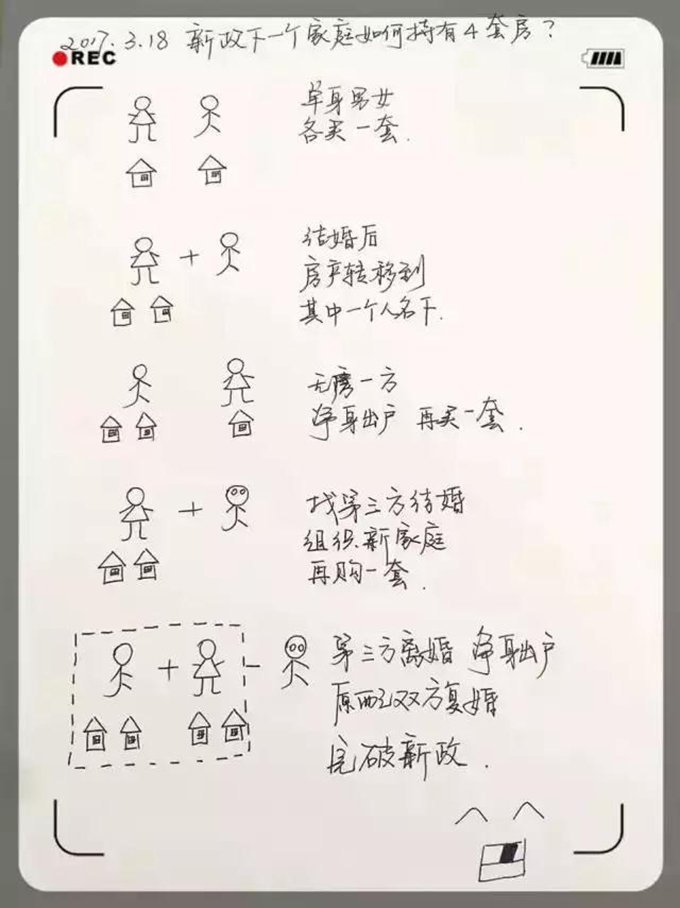 2017.3.18 新政下一个家庭如何持有4套房？
REC
单身男女
各买一套.
结婚后
房产转移到
其中一个人名下.
无房一方
净身出户 再买一套.
找第三方结婚
组织新家庭
再购一套.
第三方离婚 净身出户
原配双方复婚
完破新政.